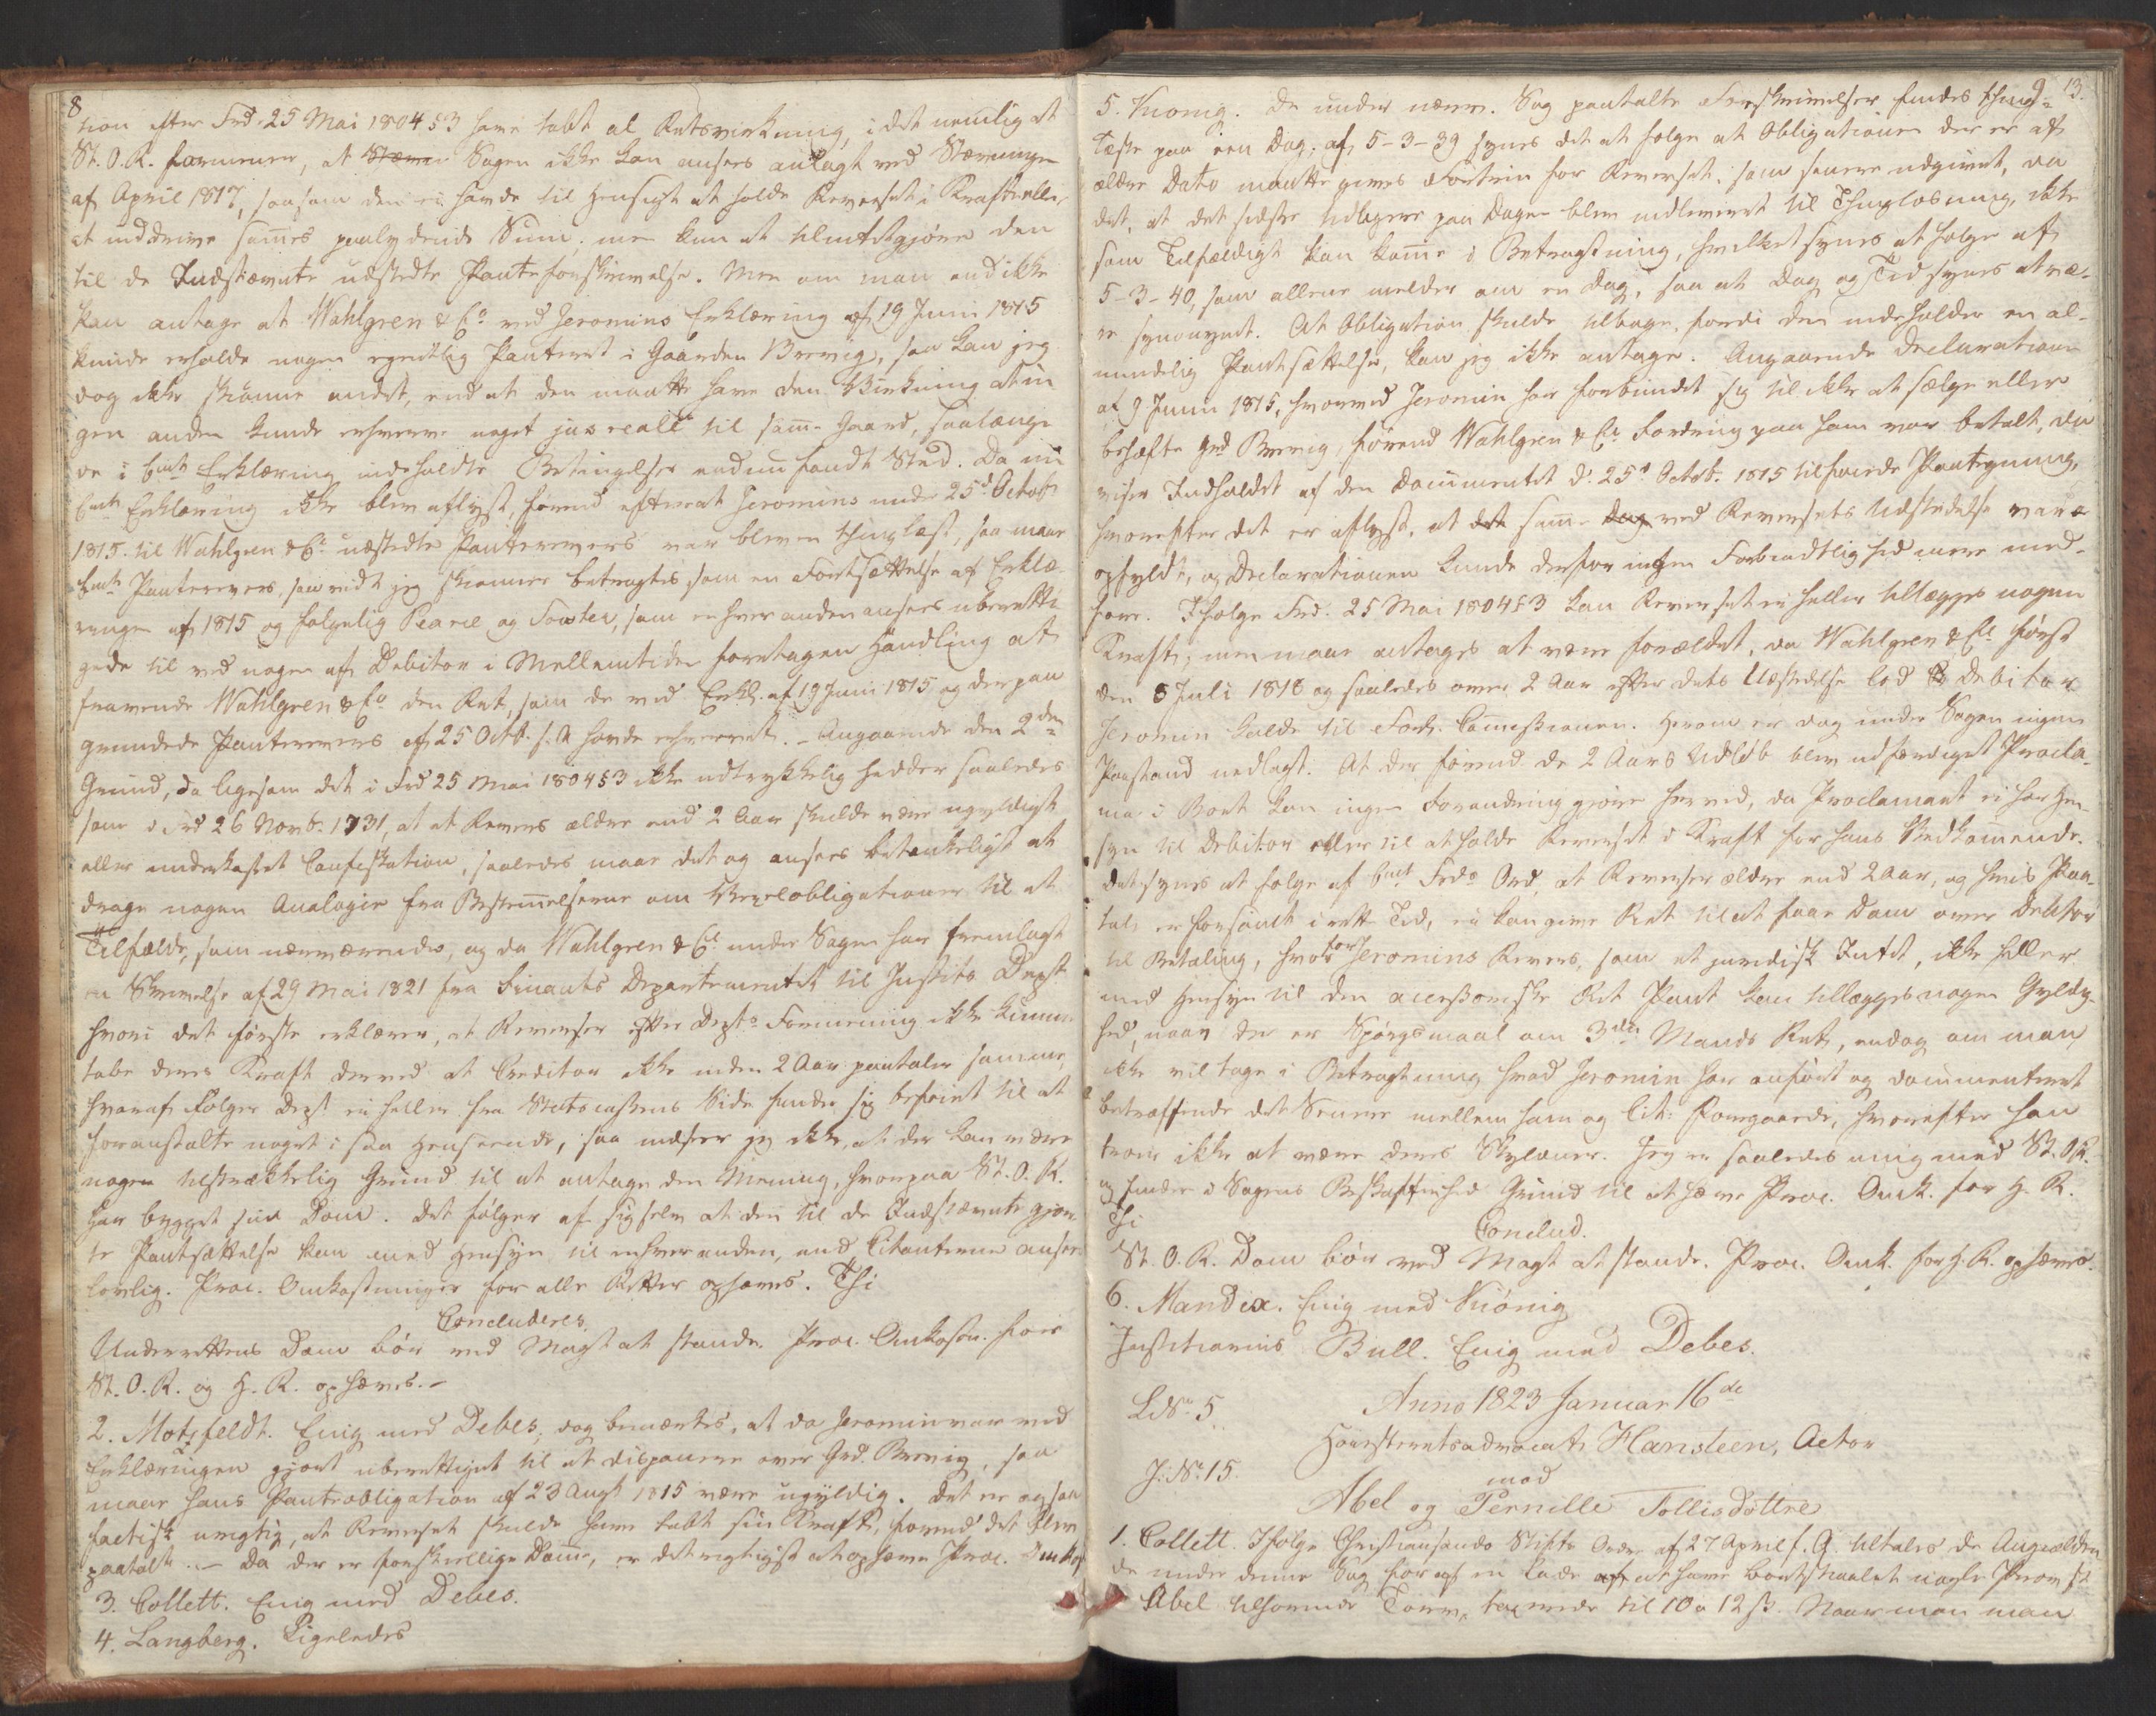 8
tion efter Frd. 25 Mai 1804 § 3 have tabt al Retsvirkning, i det nemlig at
St. O. R. formener, at Stævn Sagen ikke kan ansees anlagt ved Stævningen
af April 1817, saasom den ei havde til Hensigt at holde Reverset i Kraft eller
at inddrive sam̄es paalydende Sum̄, men kun at tilintetgjøre den
til de Indstævnte udstedte Panteforskrivelse. Men om man end ikke
kan antage at Wahlgren & Co ved Jeromins Erklæring af 19 Juni 1815
kunde erholde nogen egentlig Panteret i Gaarden Brevig, saa kan jeg
dog ikke skiønne andet, end at den maatte have den Virkning at in
gen anden kunde erhverve noget jus reale til sam̄e Gaard, saalænge
de i bmte Erklæring indeholdte Betingelser endnu fandt Sted. Da nu
bmte Erklæring ikke blev aflyst, førend efterat Jeromins under 25d Octob.
1815 til Wahlgren & Co udstedte Panterevers var bleven thinglæst, saa maae
bmte Panterevers, saavidt jeg skiønner betragtes som en Fortsættelse af Erklæ
ringen af 1815 og følgelig Pearie og Fowler, som enhver anden ansees uberetti
gede til ved nogen af Debitor i Mellemtiden foretagen Handling at
fravende Wahlgren & Co den Ret, som de ved Erkl. af 19 Juni 1815 og derpaa
grundede Panterevers af 25 Octb. s. A. havde erhvervet. – Angaaende den 2den
Grund, da ligesom det i Frd 25 Mai 1804 § 3 ikke udtrykkelig hedder saaledes
som i Frd 26 Novb. 1731, at et Revers ældre end 2 Aar skulde være ugyldigt
eller underkastet Confiskation, saaledes maae det og ansees betænkeligt at
drage nogen Analogie fra Bestem̄elserne om Vexelobligationer til et
Tilfælde, som nærværende, og da Wahlgren & Co under Sagen har fremlagt
en Skrivelse af 29 Mai 1821 fra Finants Departementet til Justits Dept
hvori det første erklærer, at Reverser efter Depts Formening ikke kunne
tabe deres Kraft derved at Creditor ikke inden 2 Aar paataler samme,
hvoraf Følger Dept ei heller fra Statscassens Side finder sig beføiet til at
foranstalte noget i saa Henseende, saa indseer jeg ikke, at der kan være
nogen tilstrækkelig Grund til at antage den Mening, hvorpaa St. O. R.
har bygget sin Dom. Det følger af sig selv at den til de Indstævnte gjor
te Pantsættelse kan med Hensyn til enhver anden, end Citanterne ansees
lovlig. Proc. Omkostninger for alle Retter ophæves. Thi
Concluderes.
Underrettens Dom bør ved Magt at stande. Proc. Omkostn. for
St. O. R. og H. R. ophæves. –
2. Motzfeldt. Enig med Debes, dog bemærkes, at da Jeromin var ved
Erklæringen gjort uberettiget til at disponere over Grd. Brevig, saa
maae hans Panteobligation af 23 Augt 1815 være ugyldig. Det er ogsaa
factisk urigtig, at Reverset skulde have tabt sin Kraft, førend det blev
paatalt. – Da der er forskiellige Dom̄e, er det rigtigst at ophæve Proc. Omkost
3. Collett. Enig med Debes.
4. Langberg. Ligeledes
9 13.
5. Knonig. De under nærv. Sag paatalte Forskrivelser findes thing-
læste paa een Dag; af 5-3-39 synes det at følge at Obligationen der er af
ældre Dato maatte gives Fortrin for Reverset, som senere udgivet, da
det, at det sidste tidligere paa Dagen blev indleveret til Thinglæsning, ikke
som Tilfældigt kan kom̄e i Betragtning, hvilket synes at følge af
5-3-40, som allene melder om en Dag, saa at Dag og Tid synes at væ-
re synonymt. At Obligation skulde tilbage, fordi den indeholder en al-
mindelig Pantsættelse, kan jeg ikke antage. Angaaende Declarationen
af 9 Juni 1815, hvorved Jeromin har forbundet sig til ikke at sælge eller
behæfte Grd Brevig, førend Wahlgren & Co Fordring paa ham var betalt, da
viser Indholdet af den Documentet d. 25d Octob. 1815 tilførede Paategning,
hvorefter det er aflyst, at det sam̄e Dag ved Reversets Udstedelse var
opfyldt, og Declarationen kunde derfor ingen Forbindtlighed mere med-
føre. Ifølge Frd. 25 Mai 1804 § 3 kan Reverset ei heller tillægges nogen
Kraft, men maae antages at være forældet, da Wahlgren & Co først
den 8 Juli 1818 og saaledes over 2 Aar efter dets Udstedelse lod Debitor
Jeromin kalde til Forl. Com̄issionen. Herom er dog under Sagen ingen
Paastand nedlagt. At der førend de 2 Aars Udløb blev udfærdiget Procla-
ma i Boet kan ingen Forandring gjøre herved, da Proclamaet ei har Hen-
syn til Debitor eller til at holde Reverset i Kraft for hans Vedkom̄ende.
Det synes at følge af bmte Frds Ord, at Reverser ældre end 2 Aar, og hvis Paa-
tale er forsømt i rette Tid, ei kan give Ret til at faae Dom over Debitor
til Betaling, hvorfor Jeromins Revers, som et juridisk Intet, ikke heller
med Hensyn til den accessoriske Ret Pant kan tillægges nogen Gyldig-
hed, naar der er Spørgsmaal om 3die Mands Ret, endog om man
ikke vil tage i Betragtning hvad Jeromin har anført og documenteret
betræffende det Senere mellem ham og Cit. Foregaaede, hvorefter han
troer ikke at være deres Skyldner. Jeg er saaledes enig med St. O. R.
og finder i Sagens Beskaffenhed Grund til at hæve Proc. Omk. for H. R.
Thi
Conclud.
St. O. R. Dom bør ved Magt at stande. Proc. Omk. for H. R. ophæves.
6. Mandix. Enig med Knonig
Justitiarius Bull. Enig med Debes.
Anno 1823 Januar 16de
L. No 5
Høiesteretsadvocat Hansteen, Actor
J. No 15.
mod
Abel og Pernille Tollisdøttre
1. Collett. Ifølge Christiansands Stifts Ordre af 27 April f. A. tiltales de Angieldten
de under denne Sag for af en Lade at have bortstiaalet nogle Prov. til
Abel tilhørende Torv, taxerede til 10 a 12 ß. Naar man man